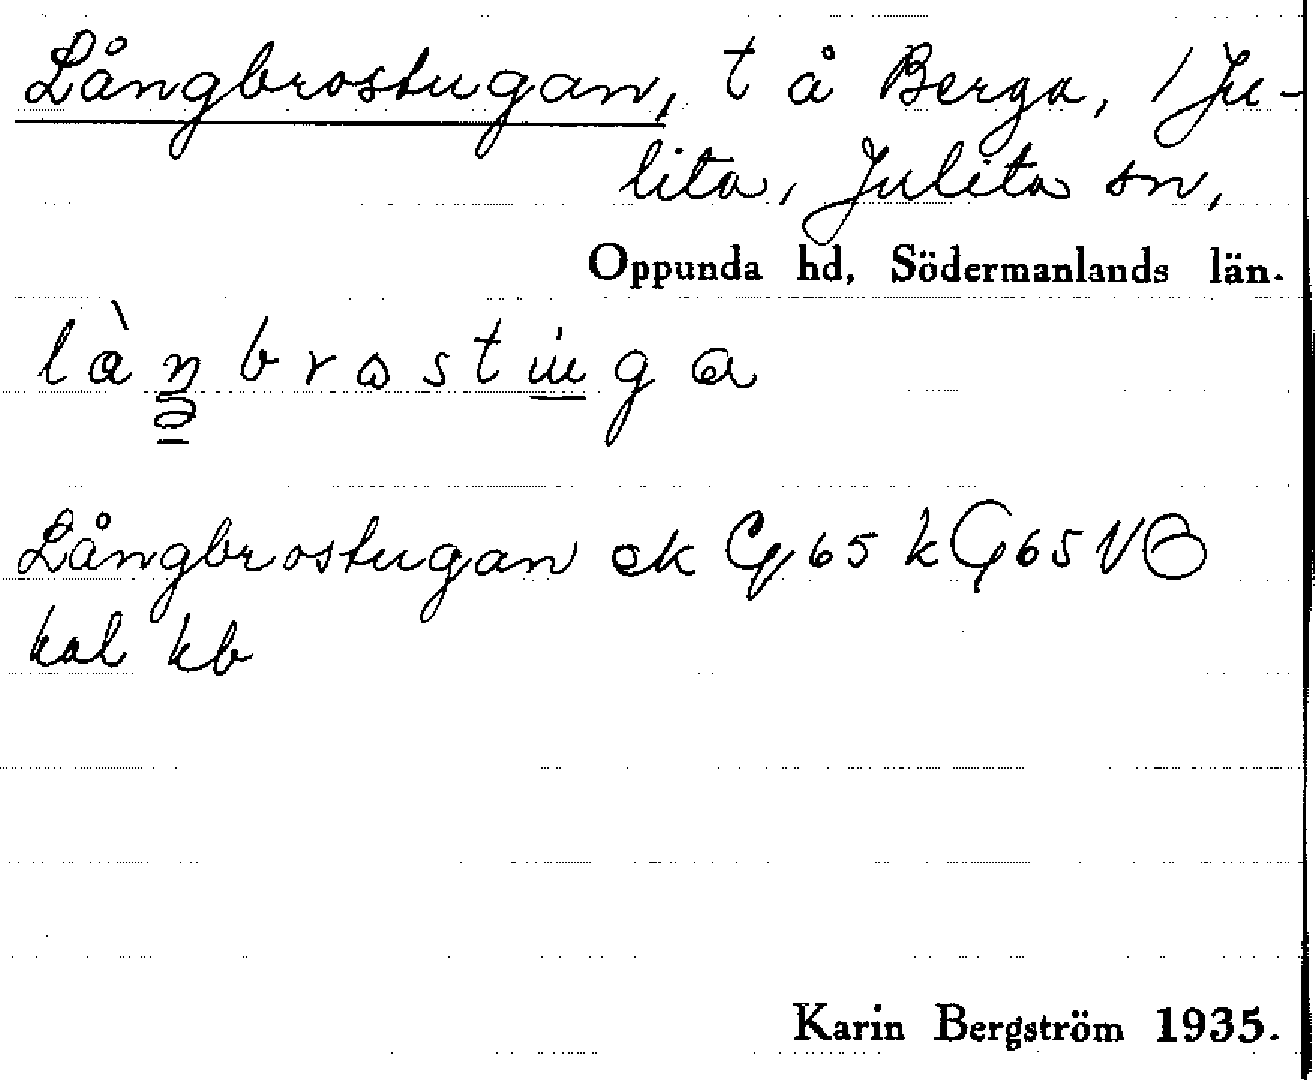 Långbrostugan, t å Berga, 1 Ju-
lita, Julita sn,
Oppunda hd, Södermanlands län.
Långbrostugan ek Gg 65 k Gg 65 VB
kal kb
Karin Bergström 1935.